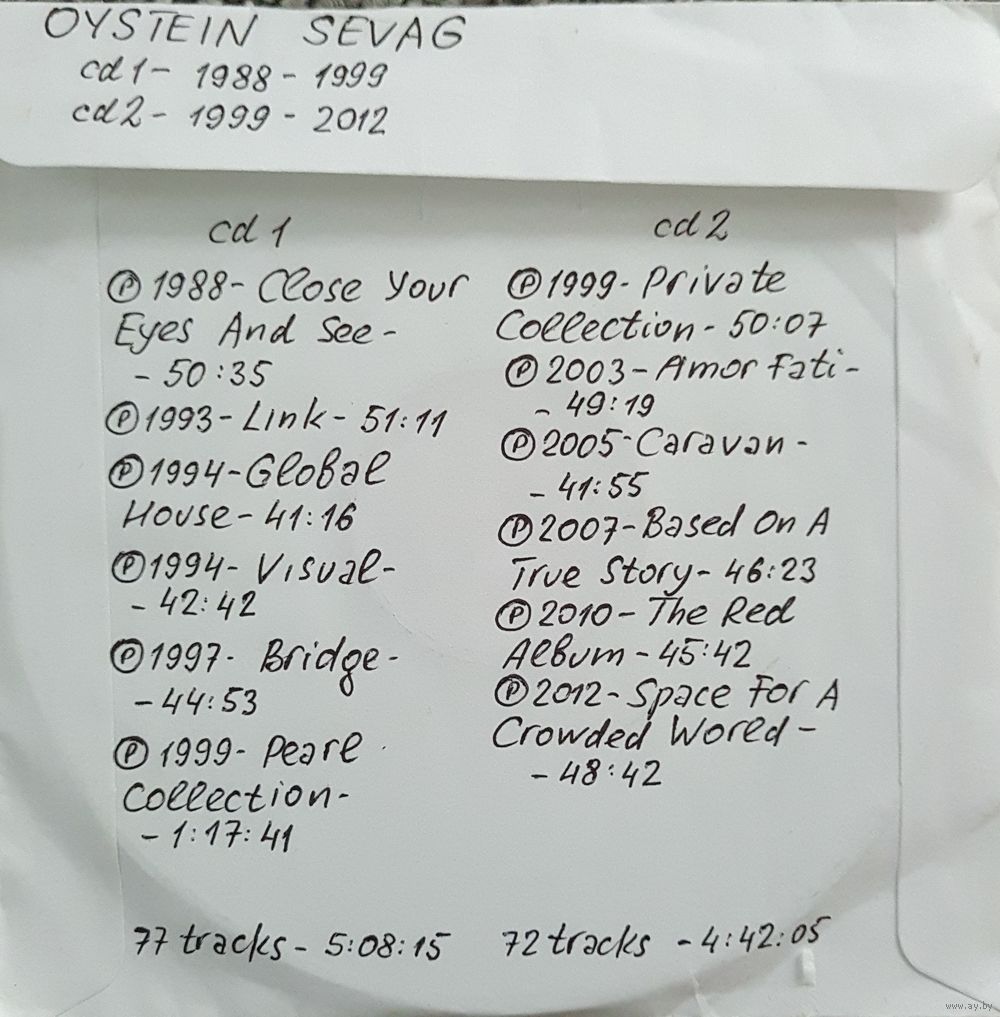 OYSTEIN SEVAG
cd 1 - 1988 - 1999
cd 2 - 1999 - 2012
cd 1
Ⓟ 1988 - Close Your
Eyes And See -
- 50:35
Ⓟ 1993 - Link - 51:11
Ⓟ 1994 - Global
House - 41:16
Ⓟ 1994 - Visual -
- 42:42
Ⓟ 1997 - Bridge -
- 44:53
Ⓟ 1999 - Pearl
Collection -
- 1:17:41
77 tracks - 5:08:15
cd 2
Ⓟ 1999 - Private
Collection - 50:07
Ⓟ 2003 - Amor Fati -
- 49:19
Ⓟ 2005 - Caravan -
- 41:55
Ⓟ 2007 - Based On A
True Story - 46:23
Ⓟ 2010 - The Red
Album - 45:42
Ⓟ 2012 - Space For A
Crowded World -
- 48:42
72 tracks - 4:42:05
www.ay.by